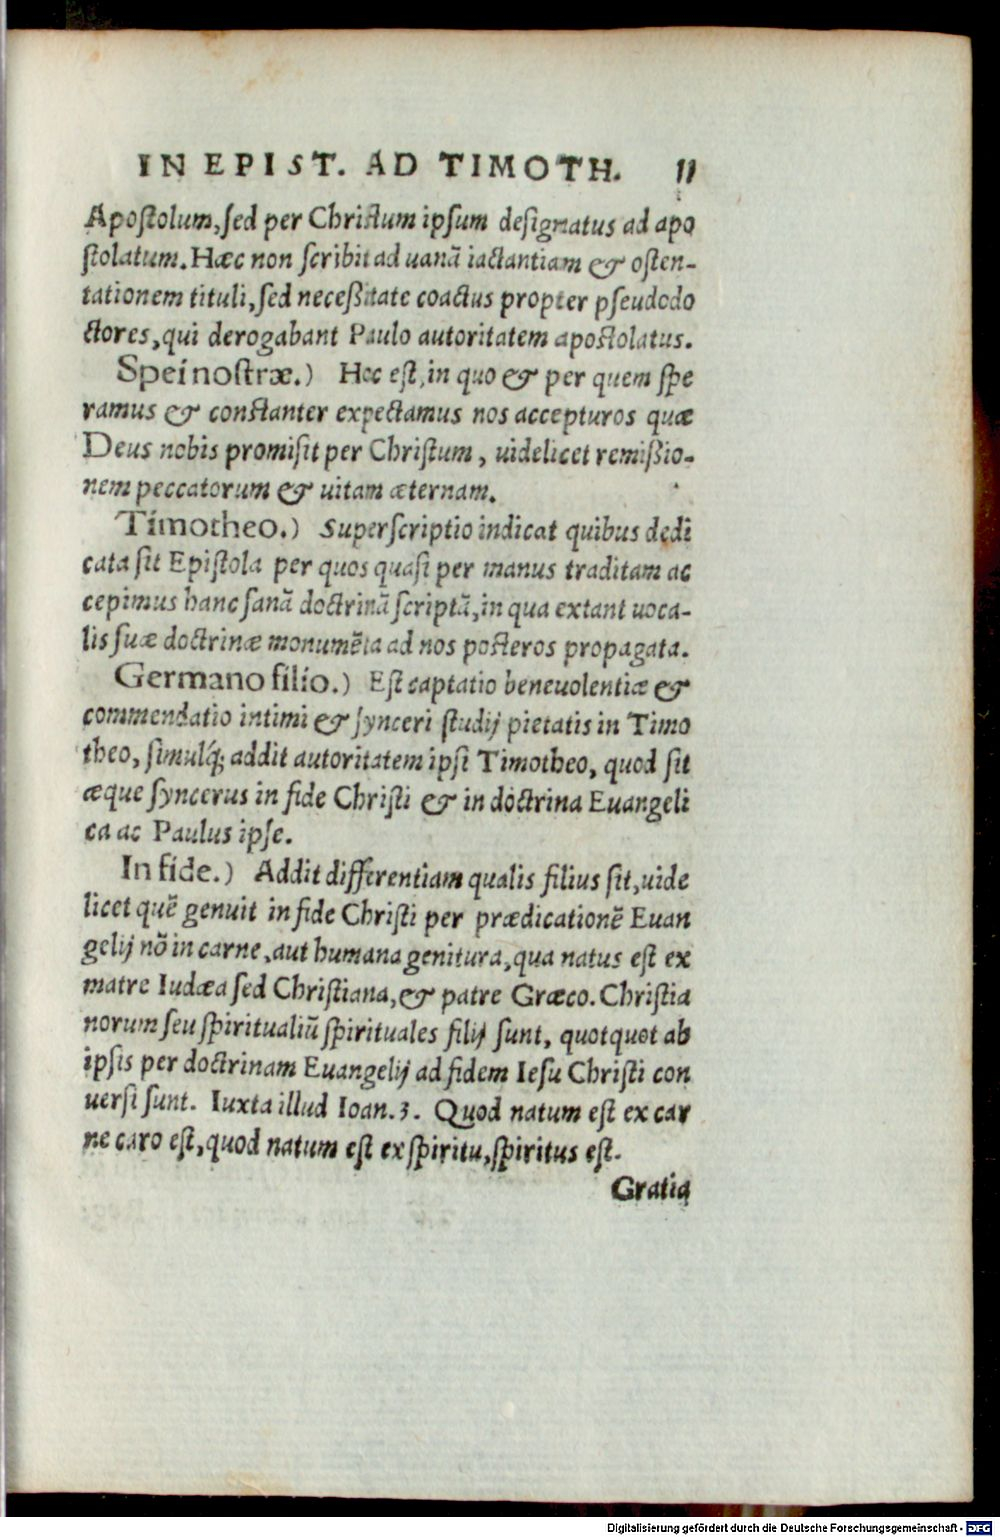 IN EPIST. AD TIMOTH. 11
Apoſtolum, ſed per Chriſtum ipſum deſignatus ad apo
ſtolatum. Hæc non ſcribit ad uanã iactantiam & oſten-
tationem tituli, ſed neceßitate coactus propter pſeudodo
ctores, qui derogabant Paulo autoritatem apoſtolatus.
Spei noſtræ.) Hoc eſt, in quo & per quem ſpe
ramus & conſtanter expectamus nos accepturos quæ
Deus nobis promiſit per Chriſtum, uidelicet remißio-
nem peccatorum & uitam æternam.
Timotheo.) Superſcriptio indicat quibus dedi
cata ſit Epiſtola per quos quaſi per manus traditam ac
cepimus hanc ſanã doctrinã ſcriptã, in qua extant uoca-
lis ſuæ doctrinæ monumẽta ad nos poſteros propagata.
Germano filio.) Eſt captatio beneuolentiæ &
commendatio intimi & ſynceri ſtudij pietatis in Timo
theo, ſimulq́; addit autoritatem ipſi Timotheo, quod ſit
æque ſyncerus in fide Chriſti & in doctrina Euangeli
ca ac Paulus ipſe.
In fide.) Addit differentiam qualis filius ſit, uide
licet quẽ genuit in fide Chriſti per prædicationẽ Euan
gelij nõ in carne, aut humana genitura, qua natus eſt ex
matre Iudæa ſed Chriſtiana, & patre Græco. Chriſtia
norum ſeu ſpiritualiũ ſpirituales filij ſunt, quotquot ab
ipſis per doctrinam Euangelij ad fidem Ieſu Chriſti con
uerſi ſunt. Iuxta illud Ioan. 3. Quod natum eſt ex car
ne caro eſt, quod natum eſt ex ſpiritu, ſpiritus eſt.
Gratia
Digitalisierung gefördert durch die Deutsche Forschungsgemeinschaft - DFG